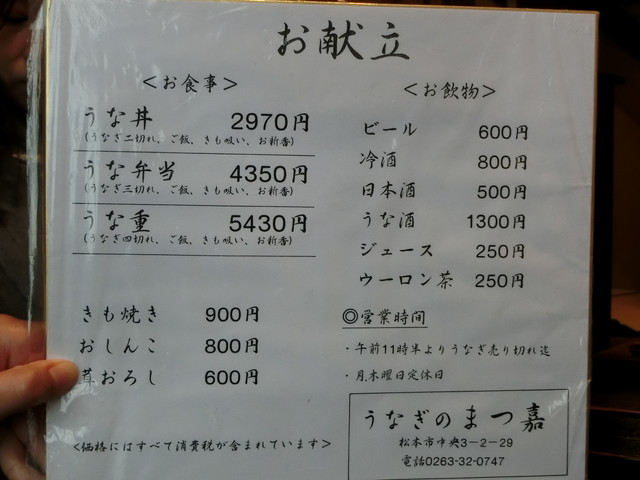 お献立
<お食事>
うな丼 2970円
(うなぎ二切れ、ご飯、きも吸い、お新香)
うな弁当 4350円
(うなぎ三切れ、ご飯、きも吸い、お新香)
うな重 5430円
(うなぎ四切れ、ご飯、きも吸い、お新香)
きも焼き 900円
おしんこ 800円
茸おろし 600円
<価格にはすべて消費税が含まれています>
<お飲物>
ビール 600円
冷酒 800円
日本酒 500円
うな酒 1300円
ジュース 250円
ウーロン茶 250円
◎営業時間
・午前11時半よりうなぎ売り切れ迄
・月木曜日定休日
うなぎのまつ嘉
松本市中央3－2－29
電話0263-32-0747